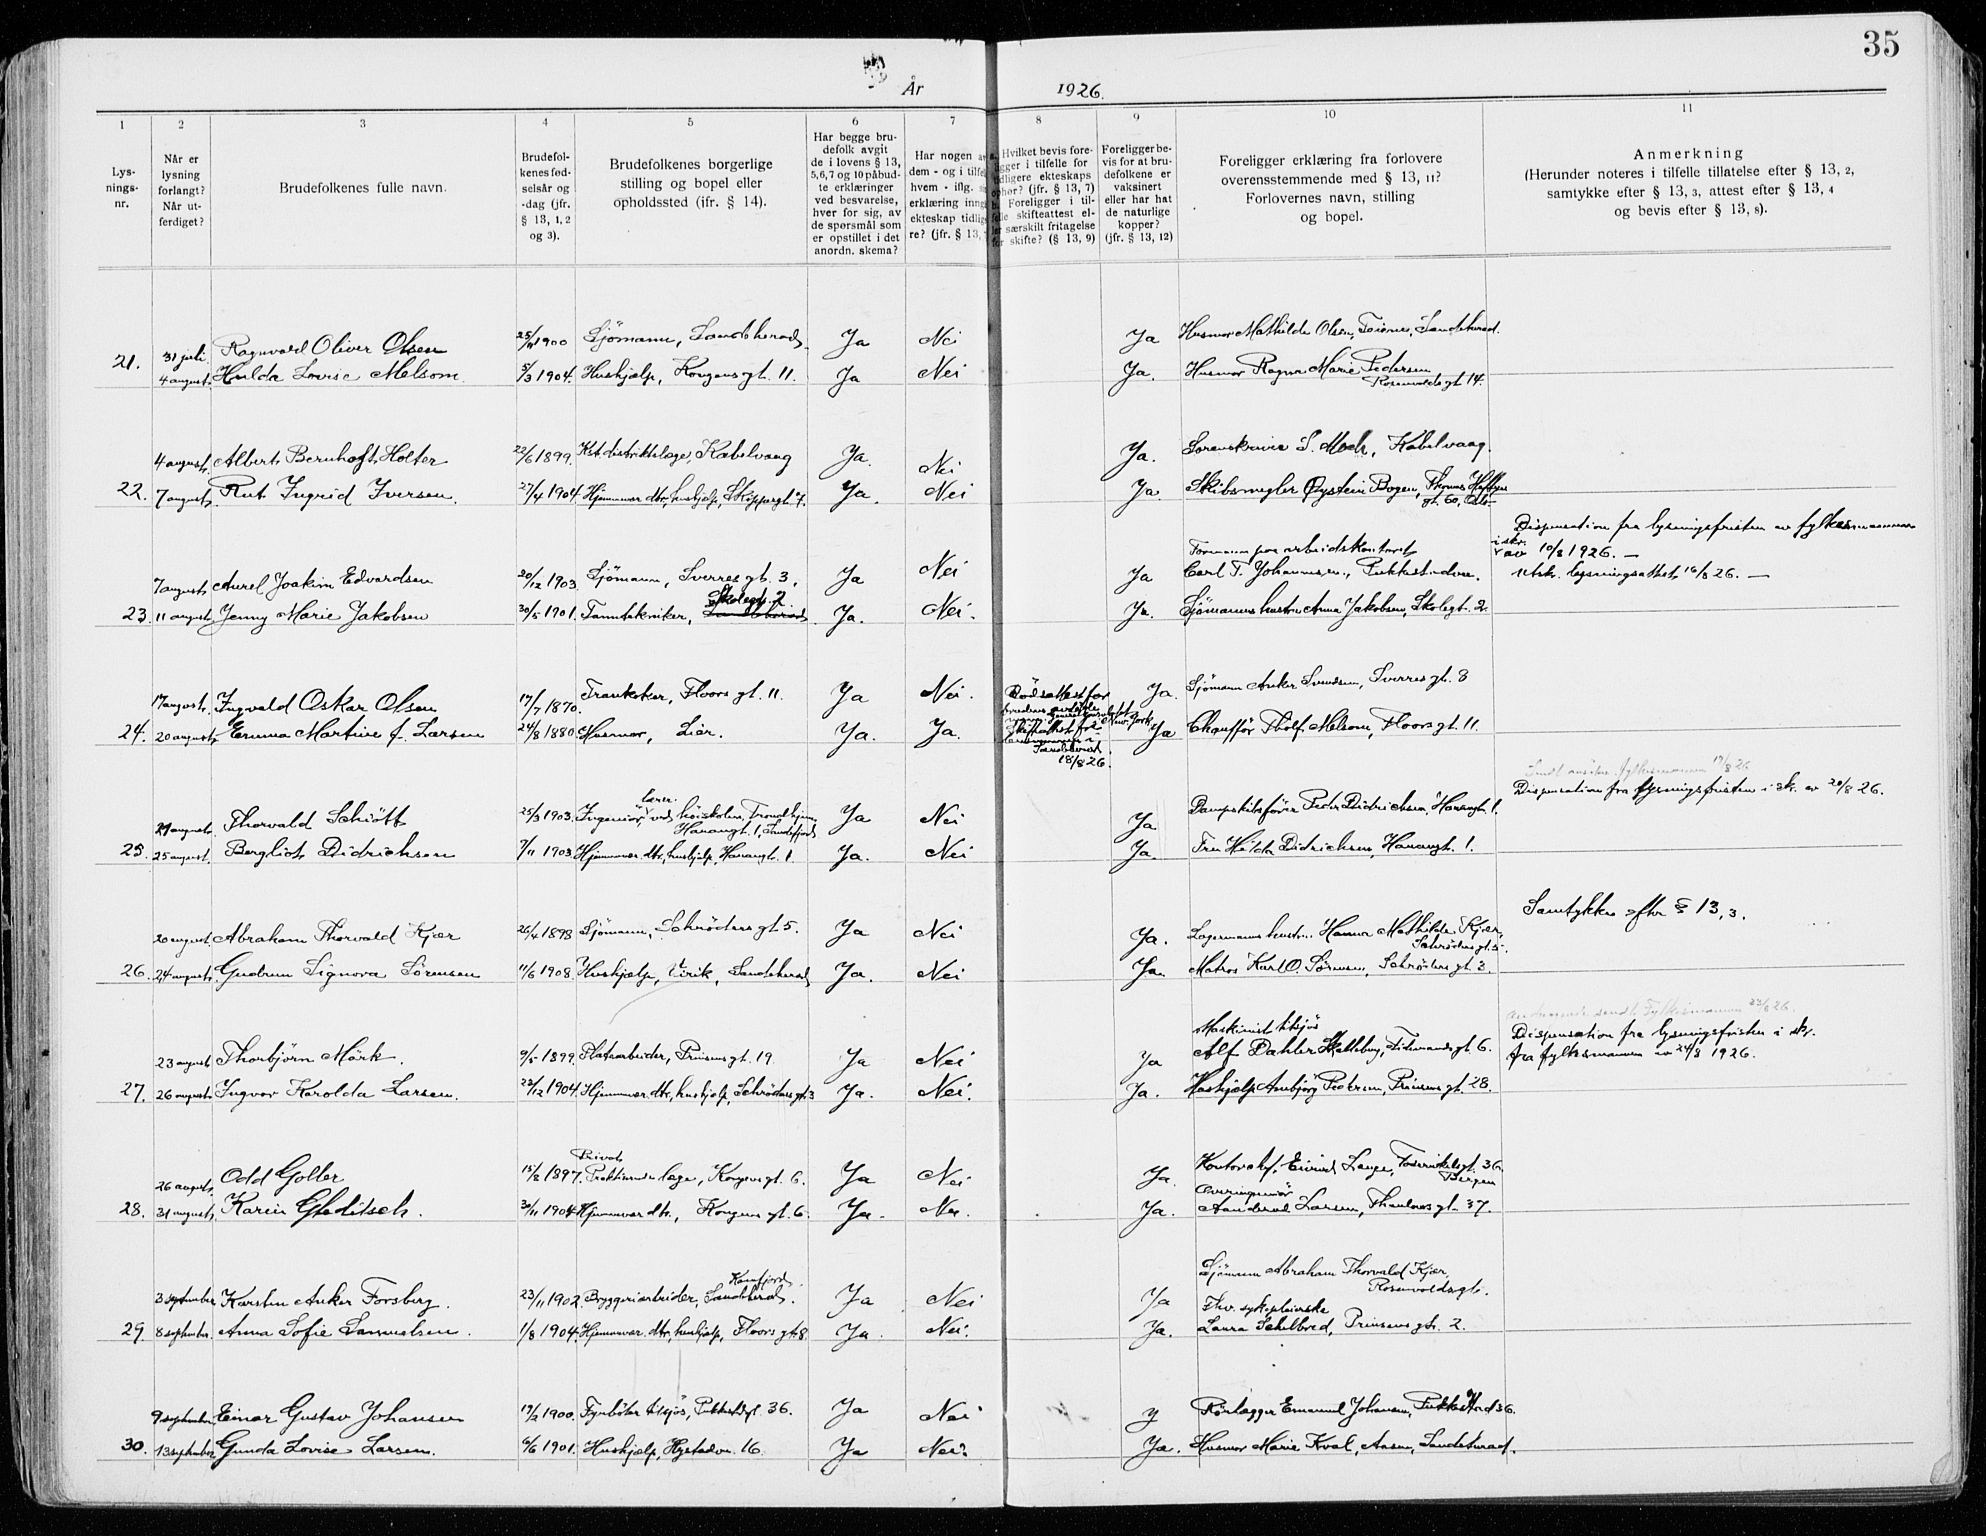 35
År 1926.
1 2 3 4 5 6 7 8 9 10 11
Lys-
nings-
nr.
Når er
lysning
forlangt?
Når ut-
ferdiget?
Brudefolkenes fulle navn.
Brudefol-
kenes fød-
selsår og
-dag (jfr.
§ 13, 1, 2
og 3).
Brudefolkenes borgerlige
stilling og bopel eller
opholdssted (ifr. § 14).
Har begge bru-
defolk avgit
de i lovens § 13,
5,6,7 og 10 påbud-
te erklæringer
ved besvarelse,
hver for sig, av
de spørsmål som
er opstillet i det
anordn. skema?
Har nogen
dem - og i
hvem - iflg.
erklæring
ekteskap
re? (jfr. § 13,
Hvilket bevis fore-
ligger i tilfelle for
tidligere ekteskaps
ophør? (jfr. § 13, 7)
Foreligger i til-
skifteattest el-
særskilt fritagelse
for skifte? (§ 13, 9)
Foreligger be-
vis for at bru-
defolkene er
vaksinert
eller har hat
de naturlige
kopper?
(jfr. § 13, 12)
Foreligger erklæring fra forlovere
overensstemmende med § 13, 11?
Forlovernes navn, stilling
og bopel.
Anmerkning
(Herunder noteres i tilfelle tillatelse efter § 13, 2,
samtykke efter § 13, 3, attest efter § 13, 4
og bevis efter § 13, 8).
31 juli Ragnvald Oliver Olsen 25/11 1900 Sjömann, Sandeherad. Ja Nei Ja Husmor Mathilde Olsen, Sandeherad.
21. 4 august. Hulda Lovise Melsom. 5/3 1904. Huskjelp, Kongensgt. 11. Ja Nei Ja. Husmor Ragna Marie Pedersen
Rosenvoldsgt. 14.
4 august. Albert Bernhoft Holter 22/6 1899. Kst. distriktslæge, Kabelvaag Ja. Nei Ja. Sorenskriver S. Moch, Kabelvaag.
22. 7 august. Rut Ingrid Iversen. 27/4 1904. Hjemmevær. dtr, huskjelp, Skippergt. 7. Ja. Nei Ja Skibsmegler Øystein Bogen, Thomas Heftyes
gt. 60, Oslo
Dispensation fra lysningsfristen av fylkesmannen
i skr. av 10/8 1926. —
7 august Aurel Joakim Edvardsen 20/12 1903. Sjömann, Sverresgt. 3, Ja Nei Ja Formann paa arbeidskontoret
Carl T. Johannesen, Pukkestadvn.
Utsk. lysningsattest 16/8 26. —
23. 11 august. Jenny Marie Jakobsen 30/5 1901. Tanntekniker, Skolegt. 2. Ja. Nei. Ja. Sjömannshustru Anna Jakobsen, Skolegt. 2.
17 august. Ingvald Oskar Olsen 17/7 1870. Trankoker, Floors gt. 11. Ja Nei. Ja. Sjömann Anker Svendsen, Sverres gt. 8
Dødsattest for
brudens
New York
Skifteattest fra
Sandeherad
18/8 26.
24. 20 august. Emma Martine f. Larsen 24/8 1880. Husmor, Lier. Ja. Ja. Ja Chauffør Thölf Melsom, Floors gt. 11.
Sendt fylkesmannen 17/8 26
Dispensation fra lysningsfristen i sk. av 20/8 26.
21 august. Thorvald Schiött 25/3 1903. Ingeniör, lærer ved höiskolen, Trondhjem,
Havangt. 1, Sandefjord Ja Nei Ja Dampskibsfører Peder Didrichsen, Havangt. 1.
25. 25 august. Bergliot Didrichsen 7/11 1903. Hjemmevær. dtr, huskjelp, Havangt. 1 Ja. Nei Ja. Fru Hilda Didrichsen, Havangt. 1.
Samtykke efter § 13, 3.
20 august. Abraham Thorvald Kjær 26/4 1898 Sjömann, Schröders gt 5. Ja Nei Ja. Lagermannshustru Hanna Mathilde Kjær,
Schröders gt. 5.
26. 24 august. Gudrun Signora Sörensen 11/6 1908. Huskjelp, Virik, Sandeherad Ja. Nei Ja. Matros Karl O. Sörensen, Schröders gt. 3.
sendt Fylkesmannen 23/8 26.
Dispensation fra lysningsfristen i skr.
fra fylkesmannen av 24/8 1926.
23 august. Thorbjörn Mörk. 9/5 1899. Platearbeider, Prinsens gt. 19. Ja Nei Ja Maskinist tilsjös
Alf Dahler Skalleberg, Tidemands gt. 6.
27. 26 august. Ingvor Karolda Larsen. 23/12 1904. Hjemmevær. dtr, huskjelp, Schröders gt. 3 Ja. Nei. Ja. Huskjelp Aubjörg Pedersen, Prinsens gt. 28.
26 august. Odd Goller 15/2 1897. Privat
Praktiserende læge, Kongens gt. 6. Ja Nei Ja. Kontorchef Eivind Lange, 36.
Bergen
28. 31 august. Karin Gleditsch. 30/11 1904. Hjemmevær. dtr., Kongens gt. 6. Ja. Nei. Ja. Overingeniör
Larsen, Thaulows gt. 37.
3 september Karsten Anker Forsberg. 23/11 1902. Bryggeriarbeider, Kamfjord, Sandeherad. Ja Nei Ja Sjömann Abraham Thorvald Kjær
Rosenvoldsgt.
29. 8 september. Anna Sofie Samuelsen. 1/8 1904. Hjemmevær. dtr, huskjelp, Floors gt. 8 Ja. Nei. Ja. Fhv. sykepleierske
Laura Schilbred, Prinsens gt. 2.
9 september. Einar Gustav Johansen 19/2 1900. Fyrböter tilsjös, Pukkestadgt. 36. Ja Nei y Rörlegger Emanuel Johansen, Pukkestad 36.
30. 13 september Gunda Lovise Larsen. 6/6 1901. Huskjelp, Hystadvn. 16. Ja Nei. Ja. Husmor Marie Kval, Aasen, Sandeherad.